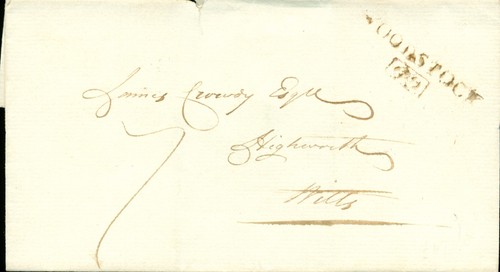 WOODSTOCK
James Crowdy Esqr
7
Highworth
Wilts